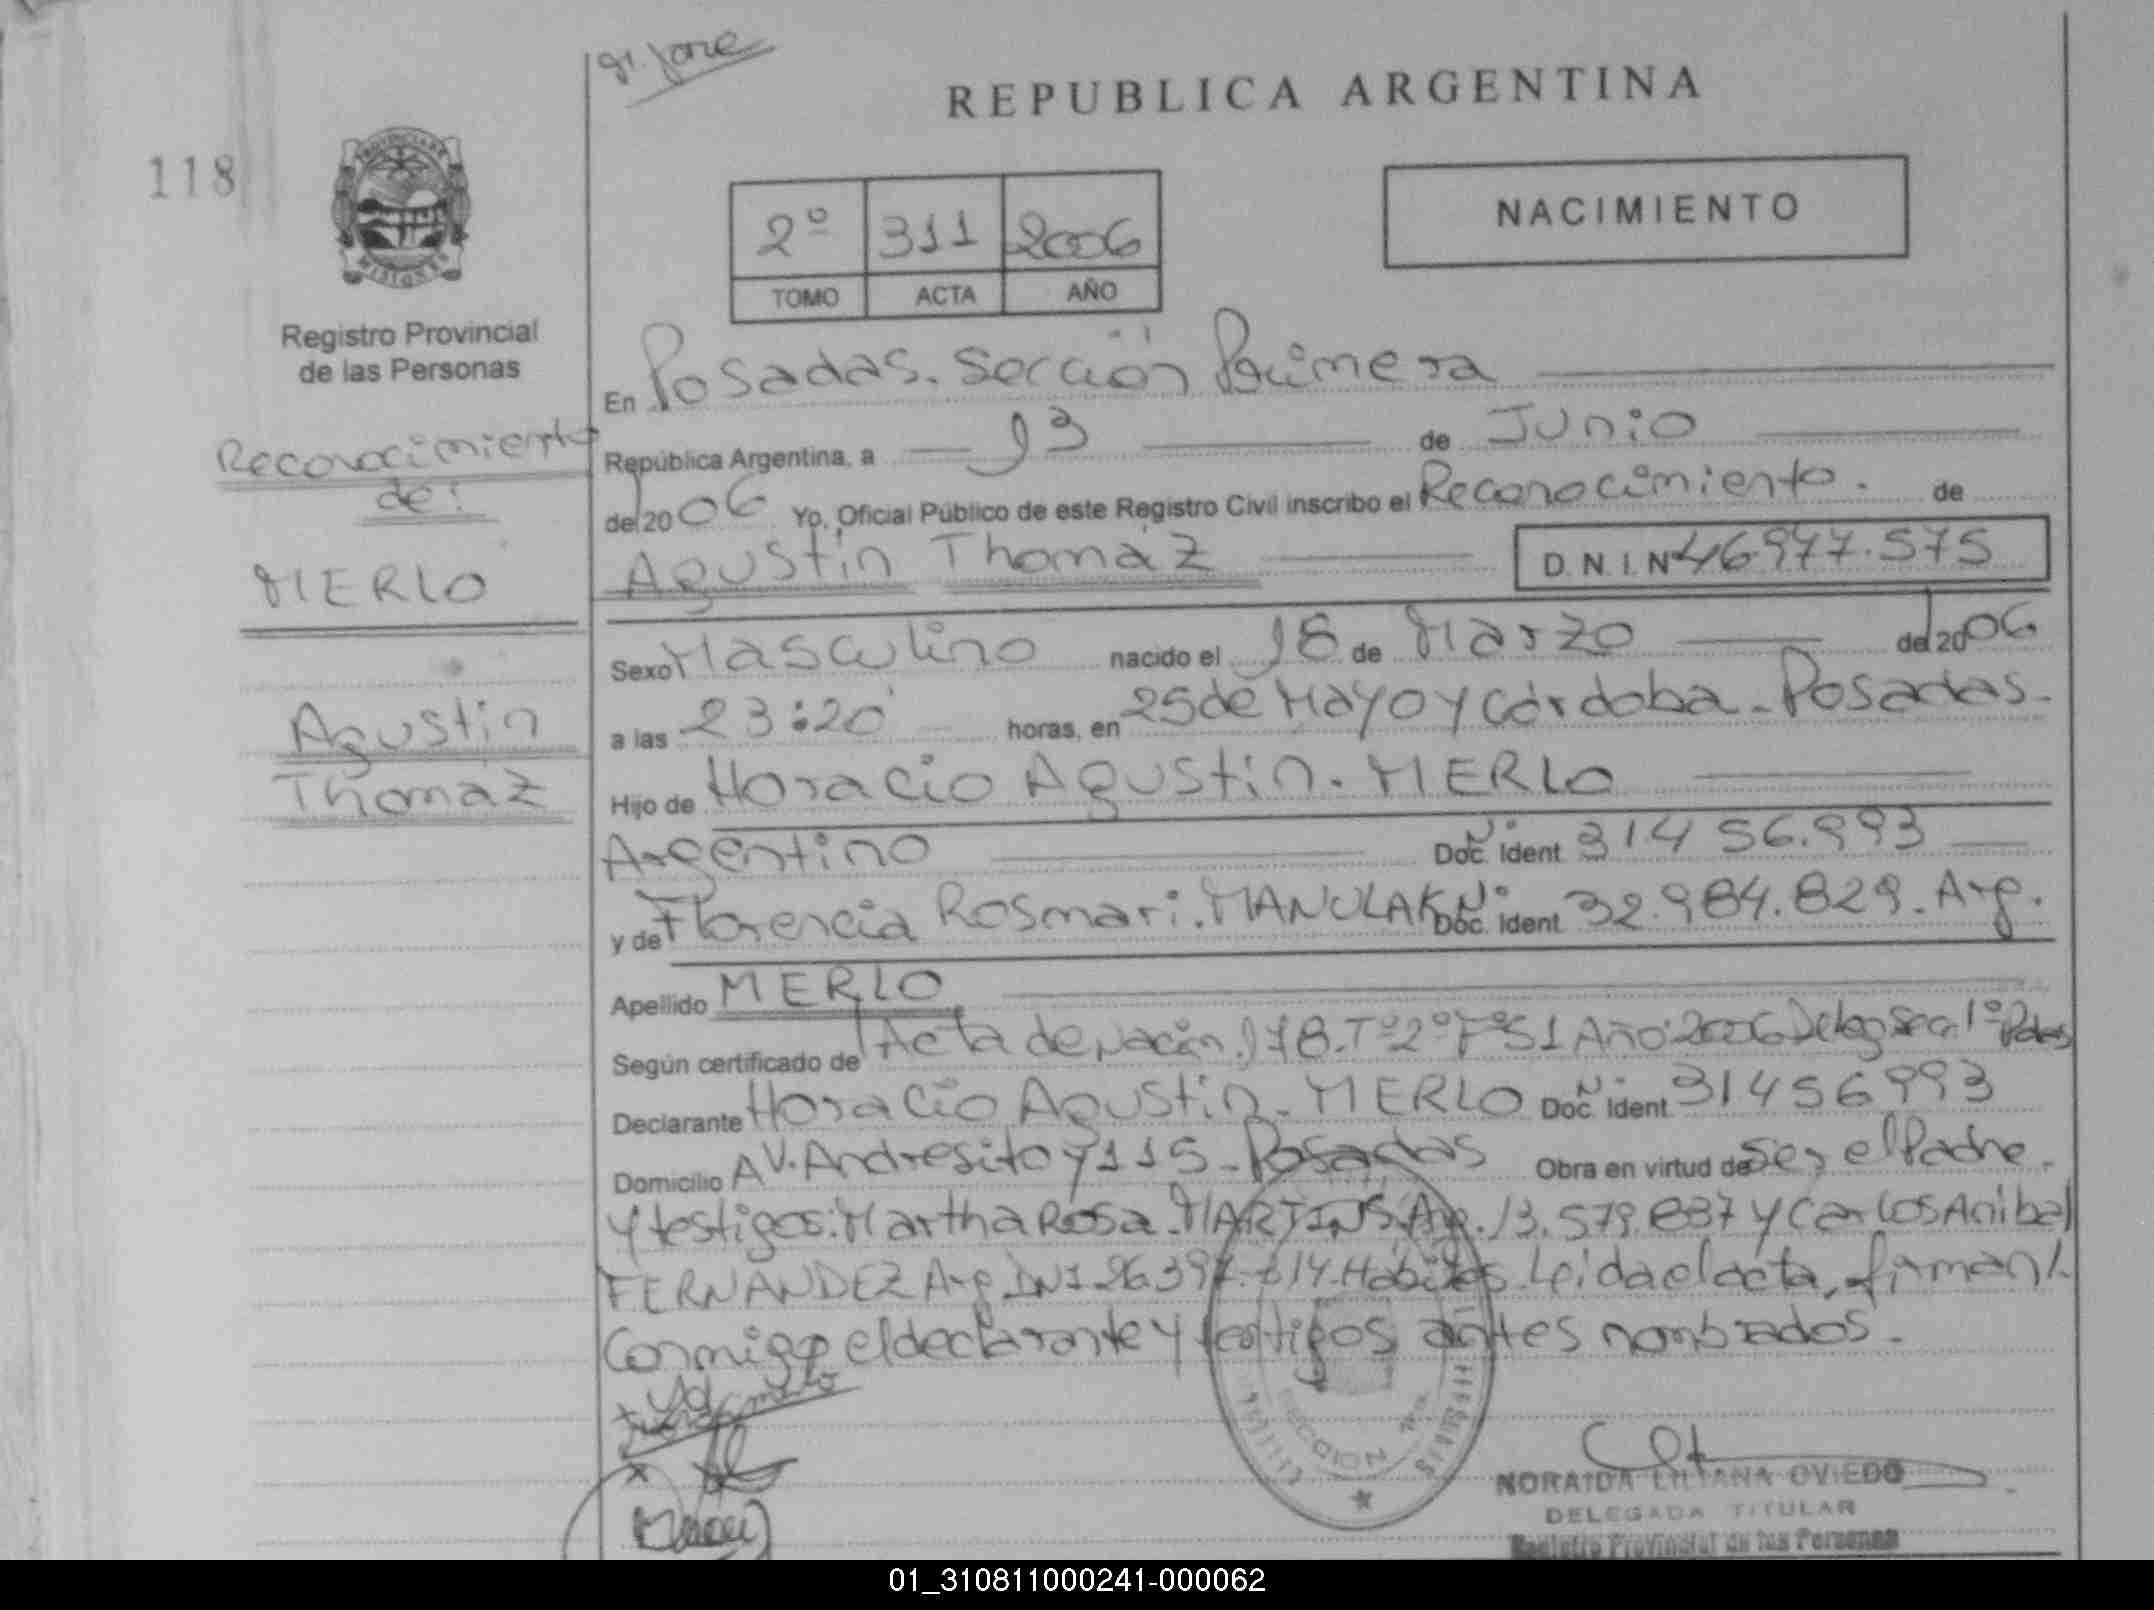 REPUBLICA ARGENTINA
118
NACIMIENTO
2º 311 2006
TOMO ACTA AÑO
Registro Provincial
de las Personas
En Posadas. Sección Primera
Reconocimiento
de:
MERLO
Agustin
Thomáz
República Argentina, a 13 de Junio
del 2006 Yo, Oficial Público de este Registro Civil inscribo el Reconocimiento. de
Agustin Thomáz D.N.I. Nº 46.977.575
Sexo Masculino nacido el 18 de Marzo del 2006
a las 23:20 horas, en 25 de Mayo y Córdoba - Posadas.
Hijo de Horacio Agustin. MERLO
Argentino Doc. Ident 31456.993
y de Florencia Rosmari. MANULAK Doc. Ident 32.984.829. Arg.
Apellido MERLO
Según certificado de Acta de Nacim. 178. Tº 2º Fº 51 Año: 2006 Deleg Secc 1º Pdas
Declarante Horacio Agustin. MERLO Doc. Ident 31456993
Domicilio AV. Andresito y 115 - Posadas Obra en virtud de Ser el Padre.
y testigos: Martha Rosa. MARTINS. Arg. 13.579.837 y Carlos Anibal
FERNANDEZ Arg DNI 26.397. Hábiles. Leida el acta, firman
Conmigo el declarante y testigos antes nombrados.
SECCION 1ra
NORAIDA LILIANA OVIEDO
DELEGADA TITULAR
Registro Provincial de las Personas
01_310811000241-000062